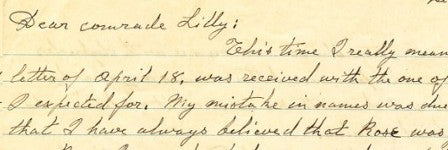 Dear comrade Lilly:
This time I really mean
letter of April 18, was received with the one of
I expected for. My mistake in names was due
that I have always believed that Rose was